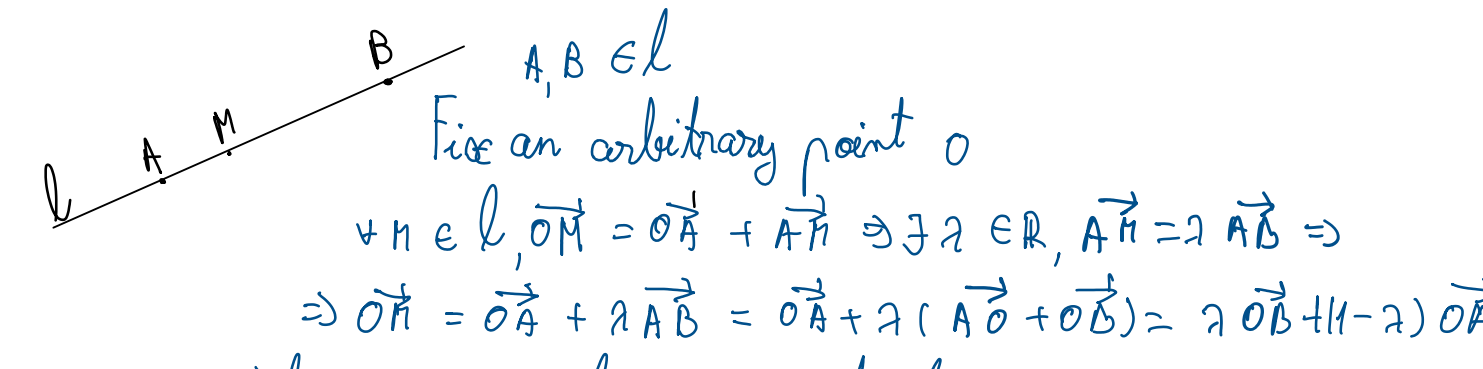 B
A, B ∈ l
M
Fix an arbitrary point O
A
l
∀ M ∈ l, \overrightarrow{OM} = \overrightarrow{OA} + \overrightarrow{AM} ⇒ ∃ λ ∈ ℝ, \overrightarrow{AM} = λ \overrightarrow{AB} ⇒
⇒ \overrightarrow{OM} = \overrightarrow{OA} + λ \overrightarrow{AB} = \overrightarrow{OA} + λ ( \overrightarrow{AO} + \overrightarrow{OB} ) = λ \overrightarrow{OB} + (1 - λ) \overrightarrow{OA}